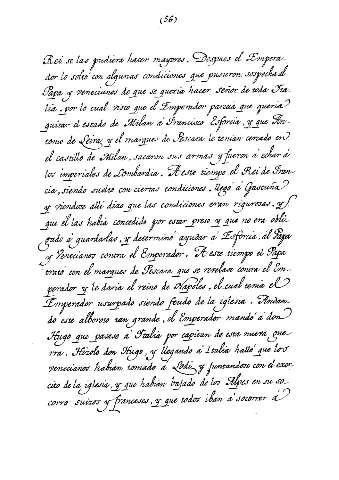 (56)
Rei se las pudiera hacer mayores. Despues el Empera-
dor lo soltó con algunas condiciones que pusieron sospecha al
Papa y venecianos de que se queria hacer señor de toda Ita-
lia, por lo cual visto que el Emperador parecia que queria
quitar el estado de Milan á Francisco Esforcia, y que An-
tonio de Leiva y el marques de Pescara le tenian cercado en
el castillo de Milan, sacaron sus armas y fueron á echar á
los imperiales de Lombardia. A este tiempo el Rei de Fran-
cia, siendo suelto con ciertas condiciones, llegó á Gascuña
y viendose alli dijo que las condiciones eran rigurosas, y
que él las habia concedido por estar preso y que no era obli-
gado á guardarlas, y determinó ayudar á Esforcia, al Papa
y Venecianos contra el Emperador. A este tiempo el Papa
trató con el marques de Pescara que se revelase contra el Em-
perador y le daria el reino de Napoles, el cual tenia el
Emperador usurpado siendo feudo de la iglesia. Andan-
do este alboroto tan grande, el Emperador mandó á don
Hugo que pasase á Italia por capitan de esta nueva gue-
rra. Hizolo don Hugo, y llegando á Italia halló que los
venecianos habian tomado á Lodi, y juntandose con el exer-
cito de la iglesia, y que habian bajado de los Alpes en su so-
corro suizos y franceses, y que todos iban á socorrer á